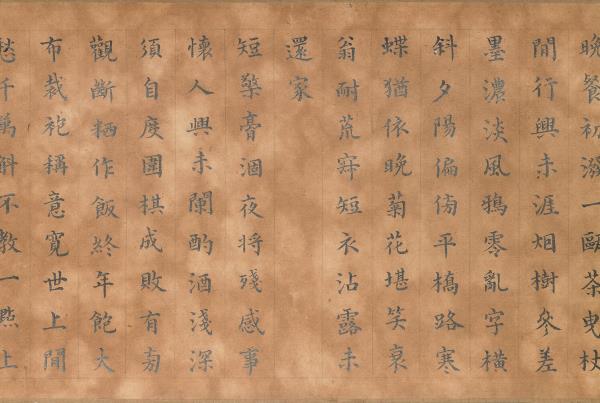 晚餐初潑一甌茶曳杖
閒行興未涯烟樹參差
墨濃淡風鴉零亂字橫
斜夕陽偏傍平橋路寒
蝶猶依晚菊花堪笑衰
翁耐荒寂短衣沾露未
還家
短檠膏涸夜將殘感事
懷人興未闌酌酒淺深
須自度圍棋成敗有旁
觀斷粞作飯終年飽大
布裁袍稱意寬世上閒
愁千萬斛不教一點上